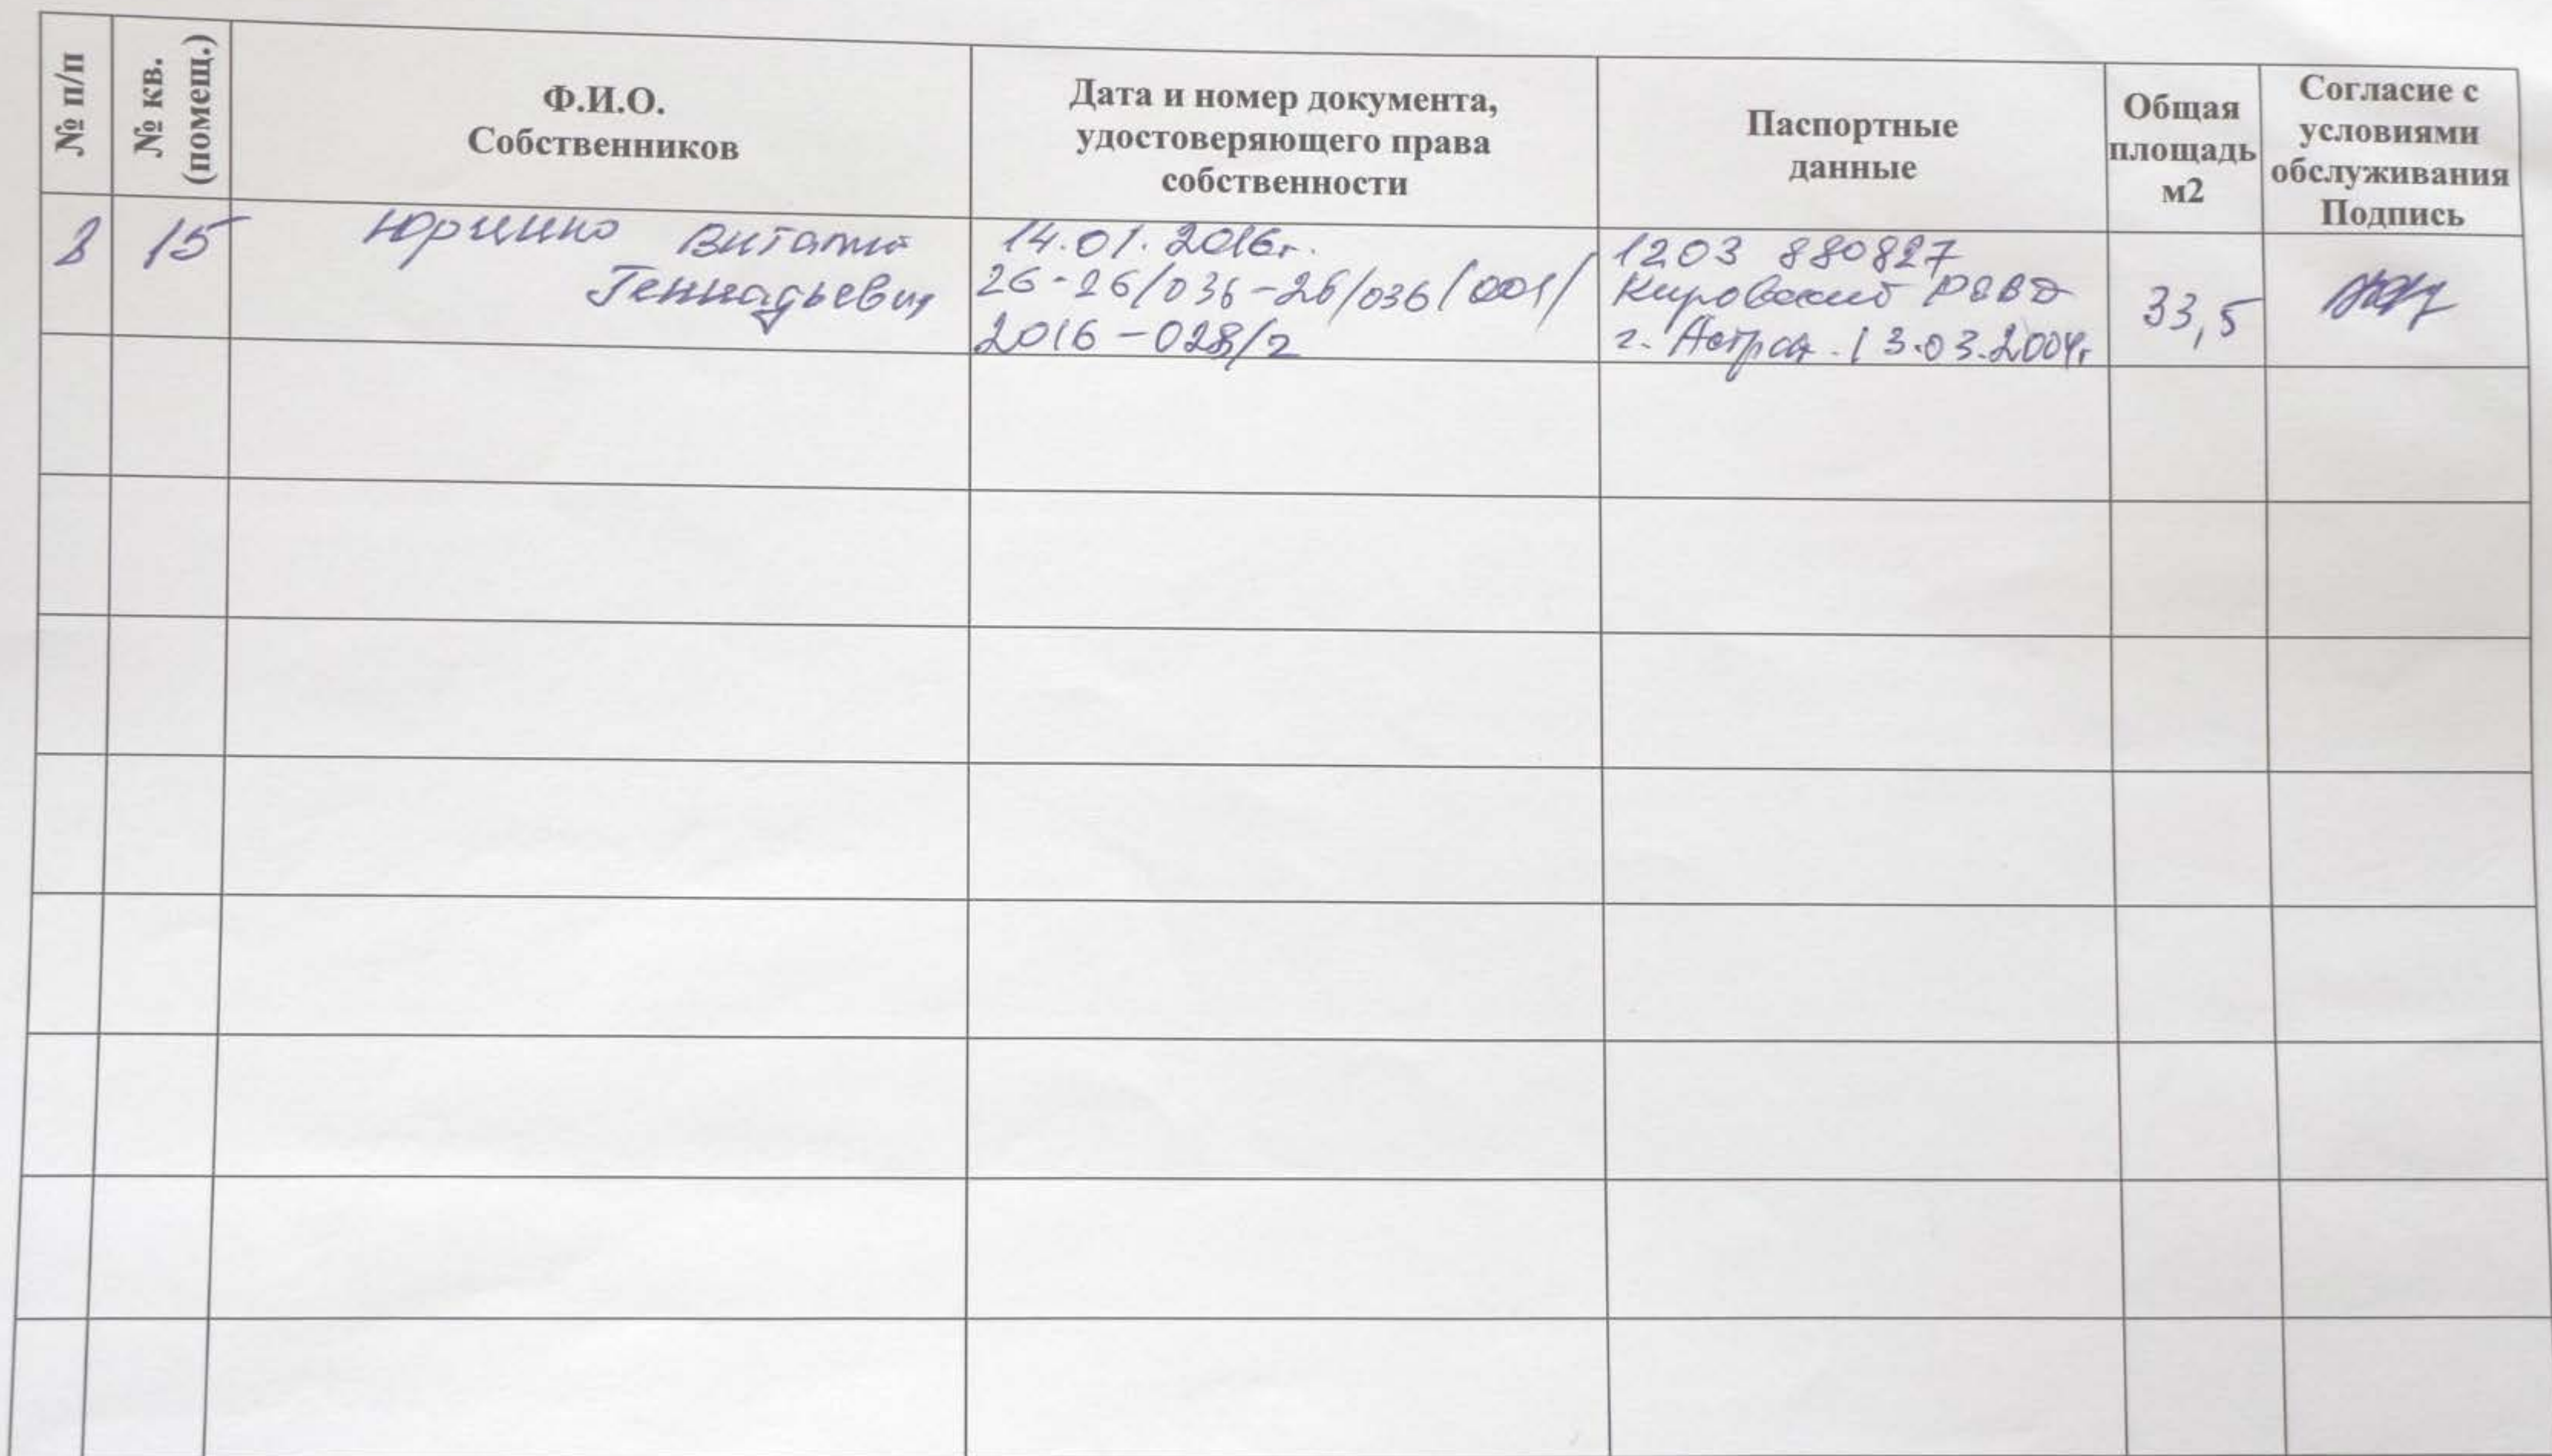 № п/п
№ кв.
(помещ.)
Ф.И.О.
Собственников
Дата и номер документа,
удостоверяющего права
собственности
Паспортные
данные
Общая
площадь
м2
Согласие с
условиями
обслуживания
Подпись
15
Виталий
Геннадьевич
14.01.2016г.
26-26/036-26/036/001/
2016-028/2
1203 880827
Кировский РОВД
г. Астрах. 13.03.2004г
33,5